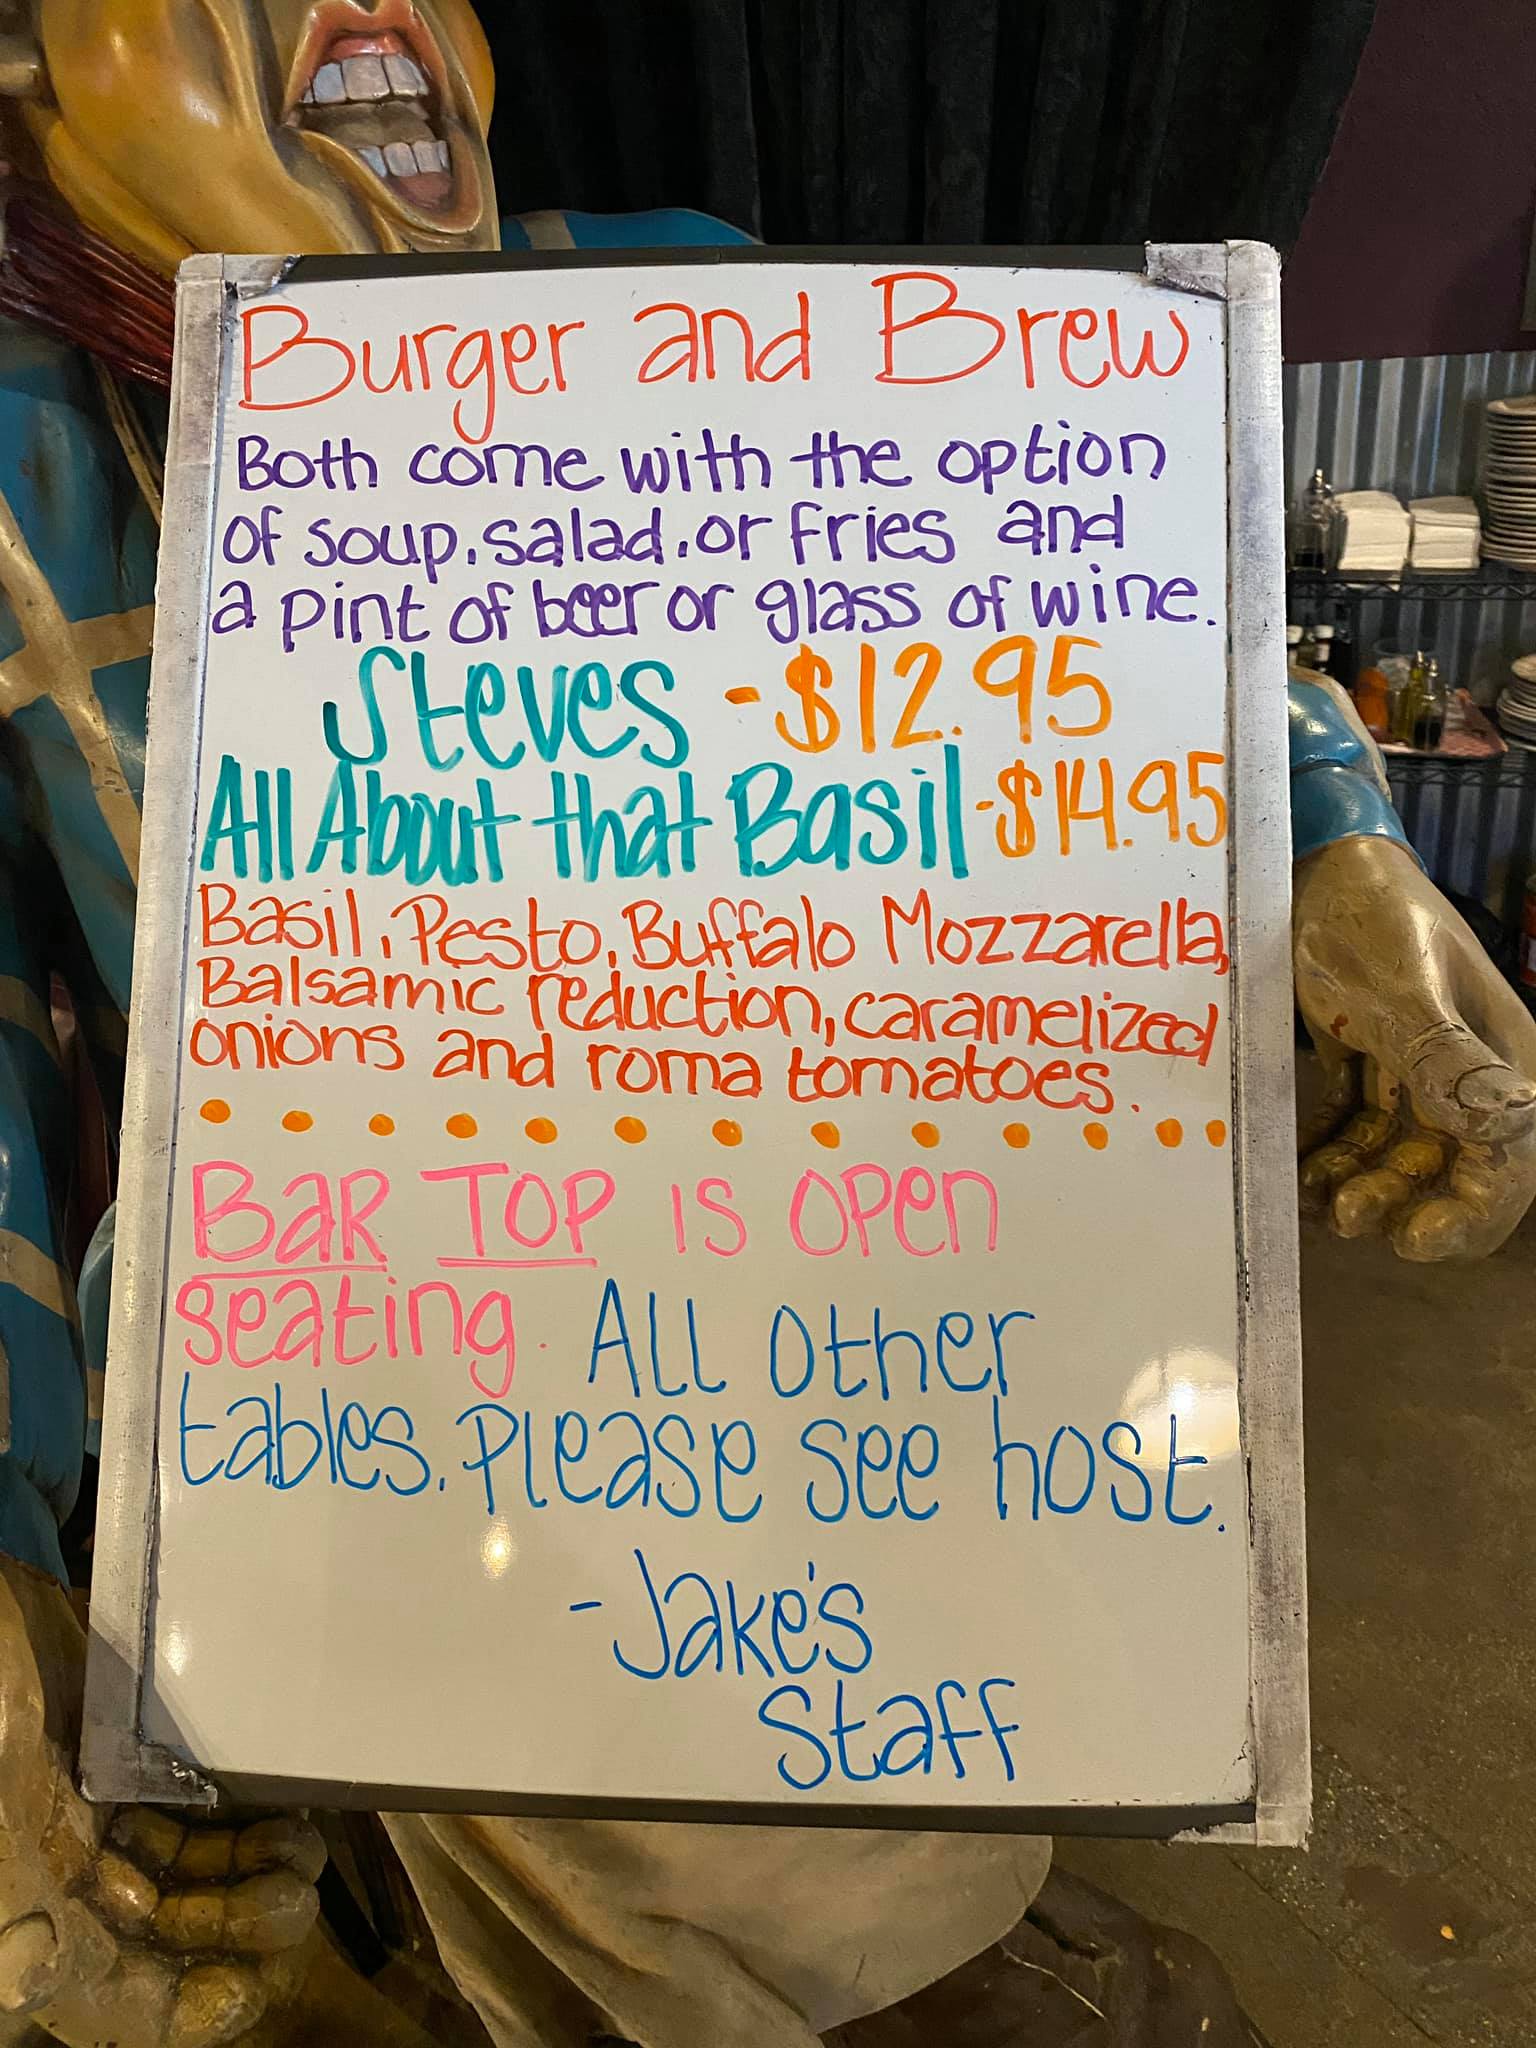 Burger and Brew
Both come with the option
of soup, salad, or fries and
a pint of beer or glass of wine.
Steves - $12.95
All About that Basil - $14.95
Basil, Pesto, Buffalo Mozzarella,
Balsamic reduction, caramelized
onions and roma tomatoes.
BaR TOP is open
seating. All other
tables. Please see host.
- Jake's
Staff